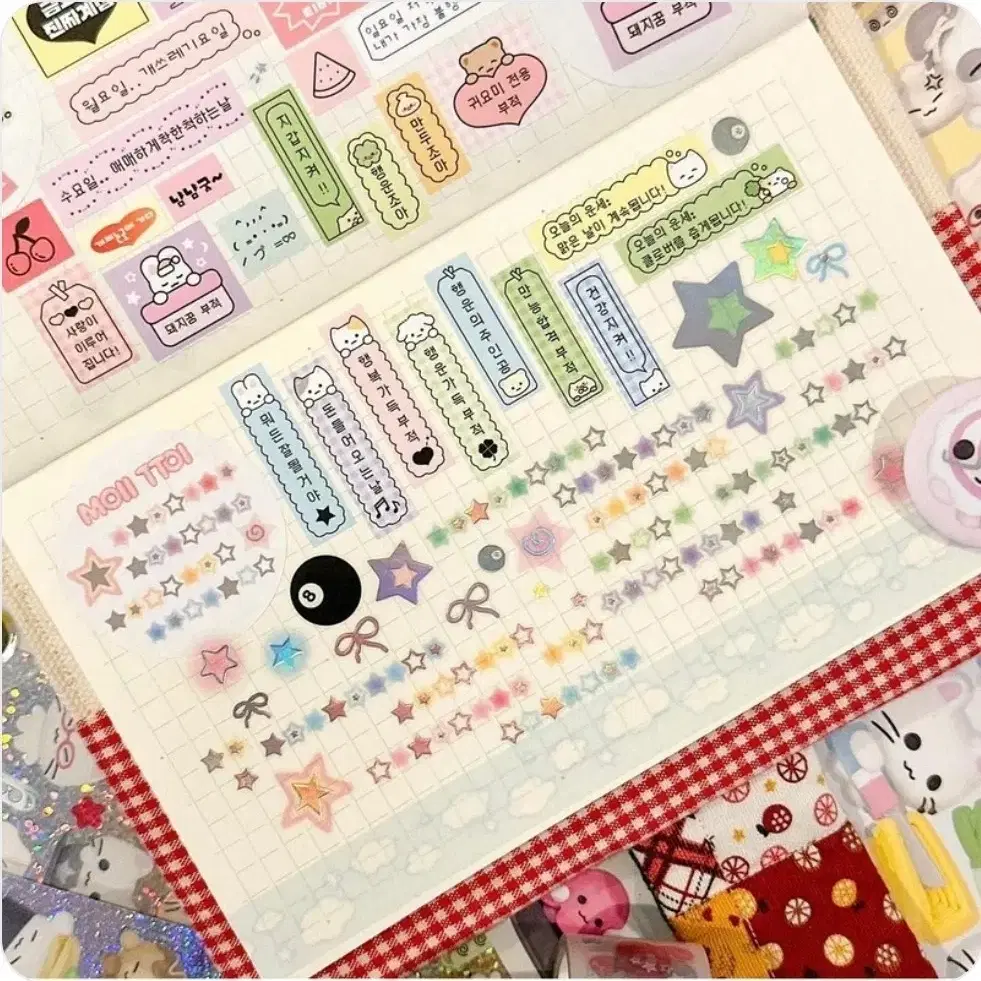 월요일.. 개쓰레기요일
일요일
내가 가장 불쌍
돼지곰 부적
수요일.. 애매하게착한척하는날
냠냠굿~
지갑지켜!!
행운조아
만두조아
귀요미 전용
부적
사랑이
이루어
집니다!
돼지곰 부적
오늘의 운세:
맑은 날이 계속됩니다!
오늘의 운세:
클로버를 줍게됩니다!
뭐든잘될거야
돈들어오는날
행복가득부적
행운가득부적
행운의주인공
만능합격부적
건강지켜!!
MOII TTOI
8